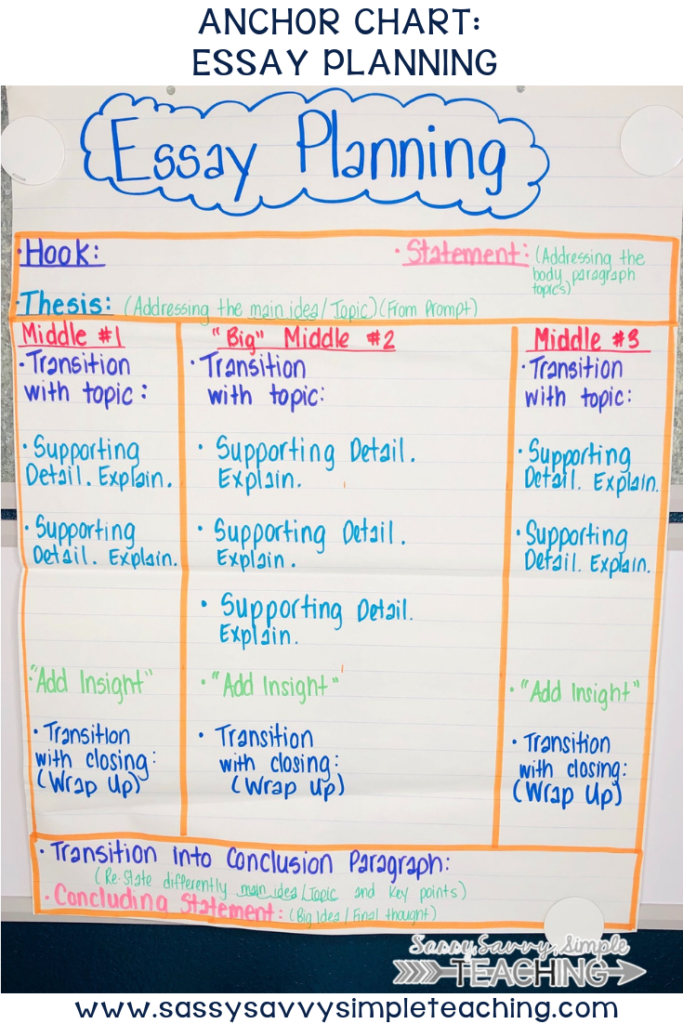 ANCHOR CHART:
ESSAY PLANNING
Essay Planning
· Hook:
· Statement: (Addressing the
body paragraph
topics)
· Thesis: (Addressing the main idea/Topic) (From Prompt)
Middle #1
· Transition
with topic:
· Supporting
Detail. Explain.
· Supporting
Detail. Explain.
· "Add Insight"
· Transition
with closing:
(Wrap Up)
"Big" Middle #2
· Transition
with topic:
· Supporting Detail.
Explain.
· Supporting Detail.
Explain.
· Supporting Detail.
Explain.
· "Add Insight"
· Transition
with closing:
(Wrap Up)
Middle #3
· Transition
with topic:
· Supporting
Detail. Explain.
· Supporting
Detail. Explain.
· "Add Insight"
· Transition
with closing:
(Wrap Up)
· Transition into Conclusion Paragraph:
(Re-State differently main idea/Topic and Key points)
· Concluding Statement: (Big Idea/Final thought)
Sassy, Savvy, Simple
TEACHING
www.sassysavvysimpleteaching.com